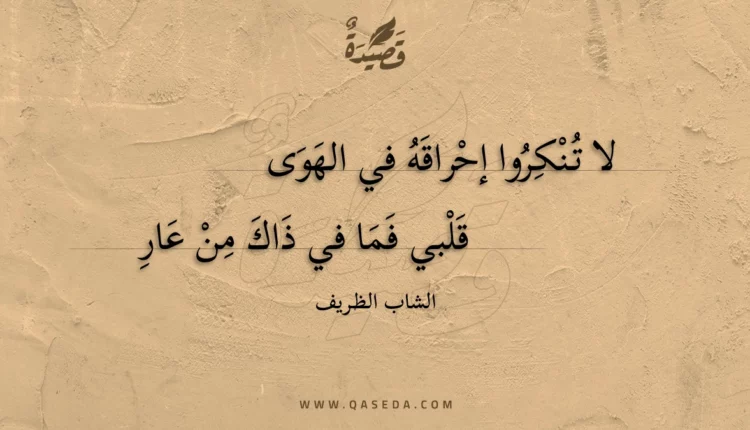 قَصِيدَةٌ
لا تُنْكِرُوا إحْراقَهُ في الهَوَى
قَلْبي فَمَا في ذَاكَ مِنْ عَارِ
الشاب الظريف
WWW.QASEDA.COM